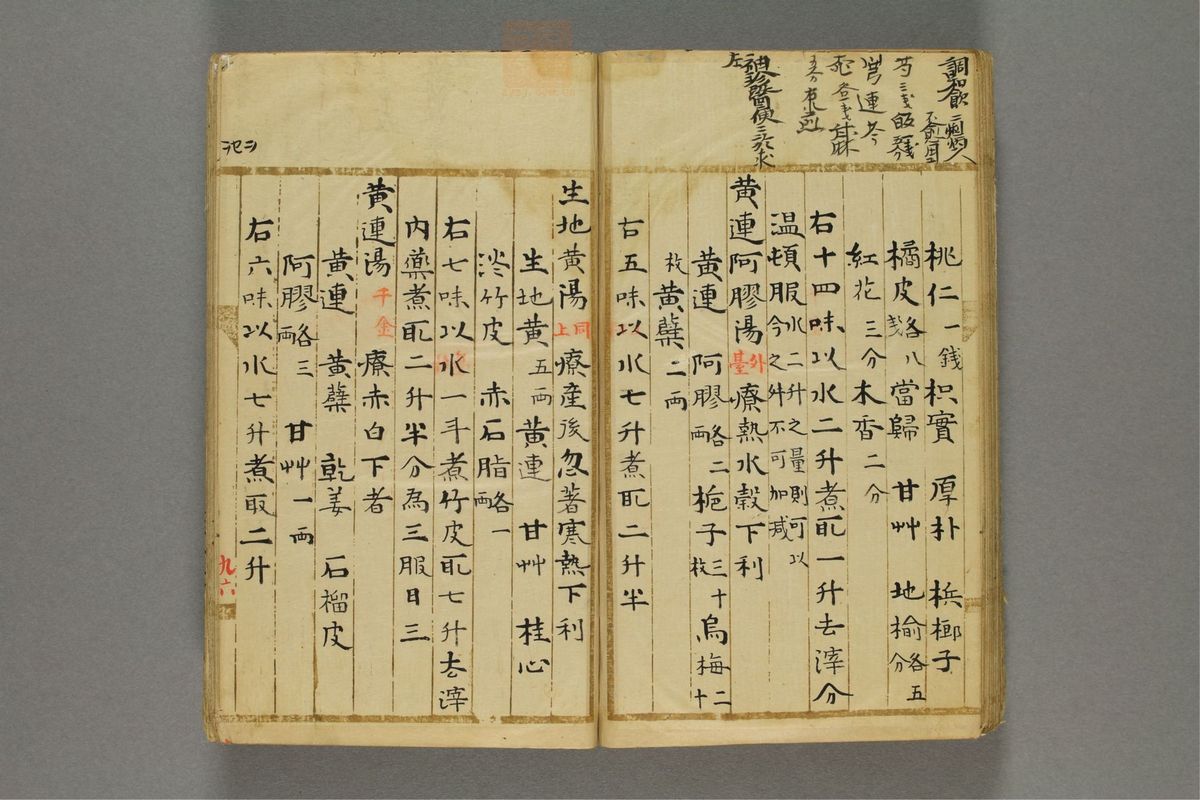 調和飲
桃仁一錢 枳實 厚朴 梹榔子
橘皮各八 當歸 甘艸 地榆各五分
紅花三分 木香二分
右十四味以水二升煮取一升去滓分
温頓服水二升之量則可以今之舛不可加减
黄連阿膠湯 外臺 療熱水穀下利
黄連 阿膠各二兩 梔子三十枚 烏梅二十
枚 黄蘗二兩
右五味以水七升煮取二升半
生地黄湯 同上 療産後忽著寒熱下利
生地黄五兩 黄連 甘艸 桂心
淡竹皮 赤石脂各一兩
右七味以水一斗煮竹皮取七升去滓
内藥煮取二升半分為三服日三
黄連湯 千金 療赤白下者
黄連 黄蘗 乾姜 石榴皮
阿膠各三兩 甘艸一兩
右六味以水七升煮取二升
九六